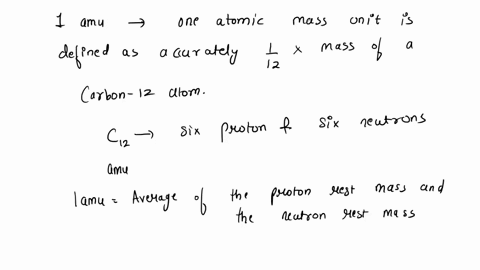 1 amu → one atomic mass unit is
defined as accurately 1/12 × mass of a
Carbon-12 atom.
C12 → six proton & six neutrons
amu
1amu = Average of the proton rest mass and
the neutron rest mass